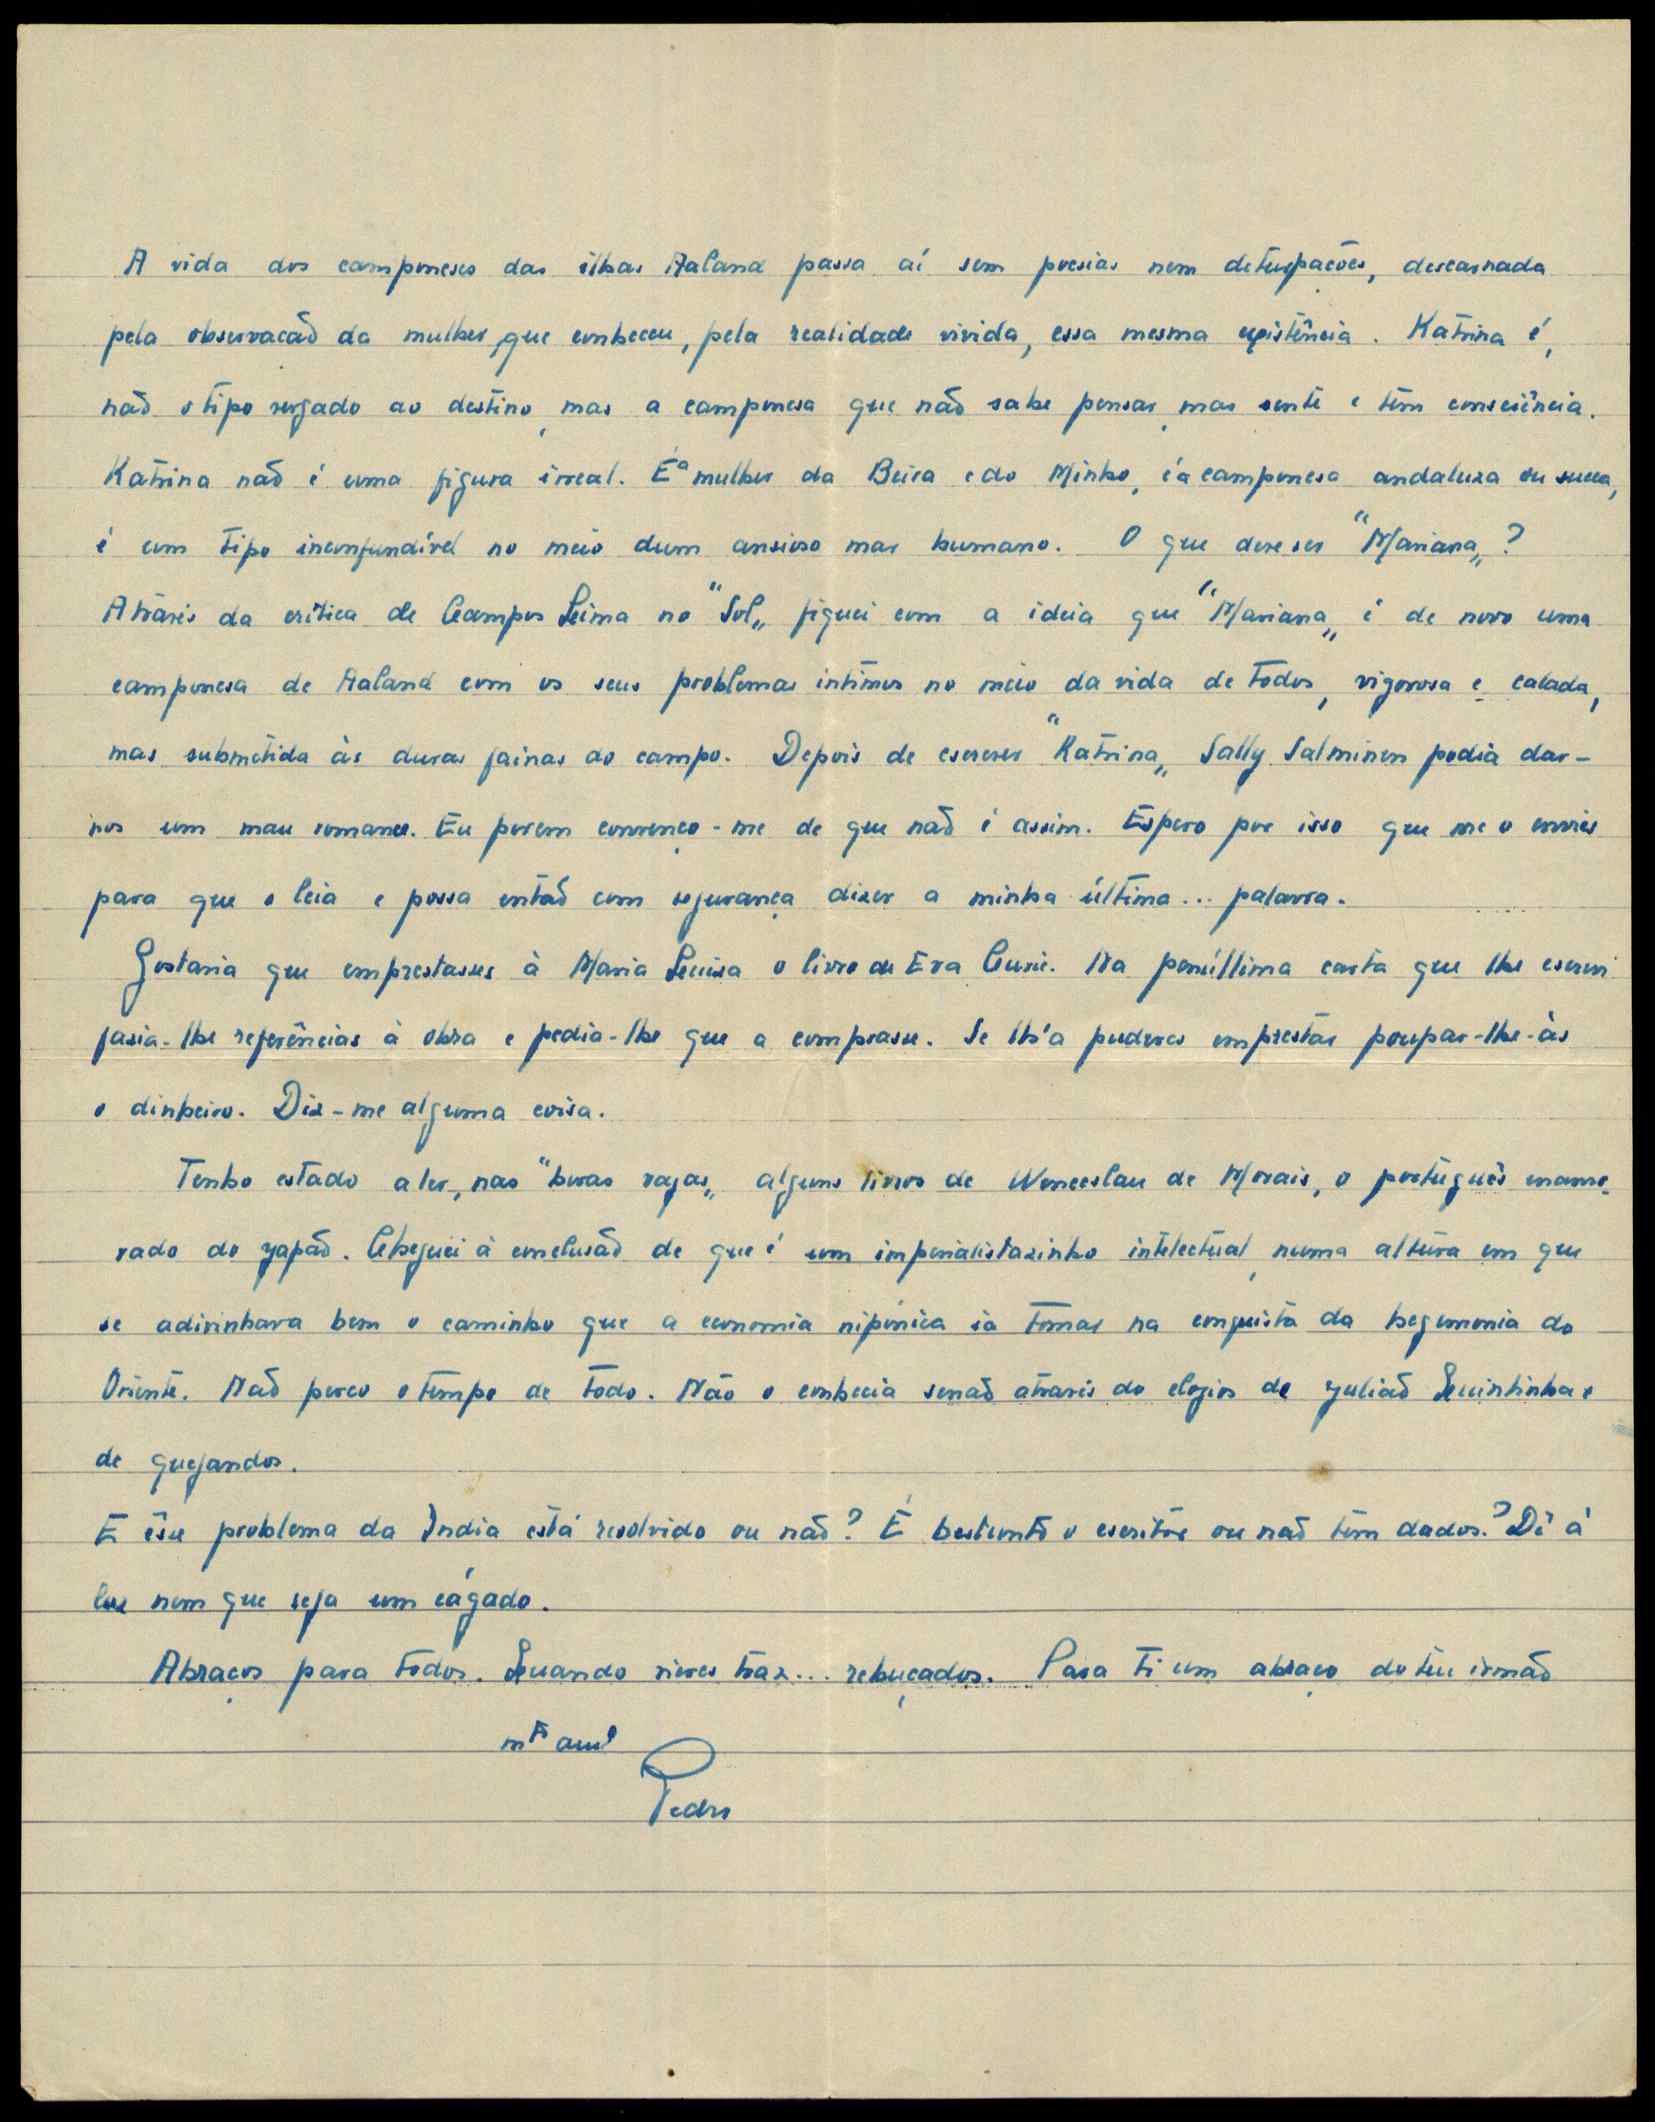 A vida dos camponeses das ilhas Aaland passa aí sem poesias nem deturpações, descarnada
pela observação da mulher que conheceu, pela realidade vivida, essa mesma existência. Katrina é,
não o tipo vergado ao destino, mas a camponesa que não sabe pensar, mas sente e tem consciência.
Katrina não é uma figura irreal. É a mulher da Beira e do Minho, é a camponesa andaluza ou sueca,
é um tipo inconfundível no meio dum ansioso mar humano. O que deve ser "Mariana„?
Através da crítica de Campos Lima no "Sol„ fiquei com a ideia que "Mariana„ é de novo uma
camponesa de Aaland com os seus problemas intimos no meio da vida de todos, vigorosa e calada,
mas submetida às duras fainas do campo. Depois de escrever "Katrina„ Sally Salminen podia dar-
nos um mau romance. Eu porem convenço-me de que não é assim. Espero por isso que me o envies
para que o leia e possa então com segurança dizer a minha última... palavra.
Gostaria que emprestasses à Maria Luisa o livro de Eva Curie. Na penúltima carta que lhe escrevi
fazia-lhe referências à obra e pedia-lhe que a comprasse. Se lh'a puderes emprestar poupar-lhe-às
o dinheiro. Diz-me alguma coisa.
Tenho estado a ler, nas "horas vagas„ alguns livros de Wenceslau de Morais, o português enamo-
rado do Japão. Cheguei à conclusão de que é um imperialistazinho intelectual, numa altura em que
se adivinhava bem o caminho que a economia nipónica ia tomar na conquista da hegemonia do
Oriente. Não perco o tempo de todo. Não o conhecia senão através do elogios de Julião Quintinha e
de quejandos.
E êsse problema da Índia está resolvido ou não? É bestunto o escritor ou não tem dados? Dê à
luz nem que seja um cágado.
Abraços para todos. Quando vieres traz... rebuçados. Para ti um abraço do teu irmão
mto amº
Pedro